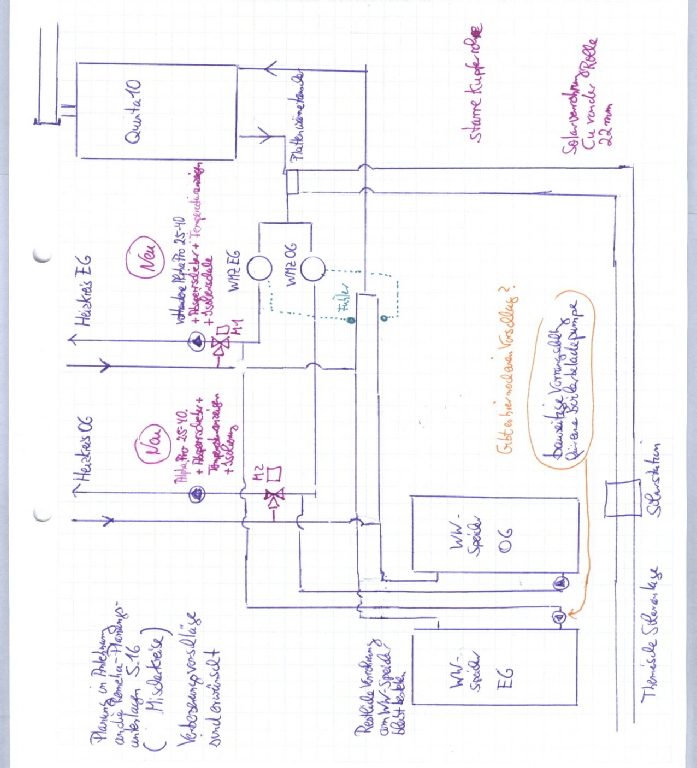 Planung in Anlehnung
an die Remeha-Planungs-
unterlagen S.16
( Mischerkreise )
Verbesserungsvorschläge
sind erwünscht
↑ Heizkreis OG
↑ Heizkreis EG
Neu
Alpha Pro 25-40
+ Absperrschieber +
Temperaturanzeigen
+ Isolierung
M2
Neu
vorhandene Alpha Pro 25-40
+ Absperrschieber + Temperaturanzeigen
+ Isolierschale
M1
Quinta 10
WMZ EG
WMZ OG
Plattenwärmetauscher
Fühler
Restliche Verrohrung
am WW-Speicher
bleibt bestehen
WW-
Speicher
EG
WW-
Speicher
OG
Gibt es hier noch einen Vorschlag?
Derzeitige Vorrangschaltung
für eine Boilerladepumpe
starre Kupferrohre
Solarverrohrung
Cu von der Rolle
22 mm
Thermische Solaranlage
Solarstation